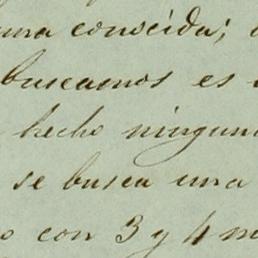 una conocida;
buscamos es
hecho ningun
se busca una
o con 3 y 4 m